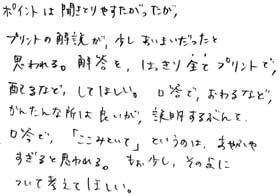 ポイントは聞きとりやすたがったが、
プリントの解説が、少しあいまいだったと
思われる。解答を、はっきり全てプリントで、
配るなど、してほしい。口答で、おわるなど、
かんたんな所は良いが、説明するぶんを、
口答で、「ここみといて」というのは、あやふや
すぎると思われる。もう少し、その
ついて考えてほしい。